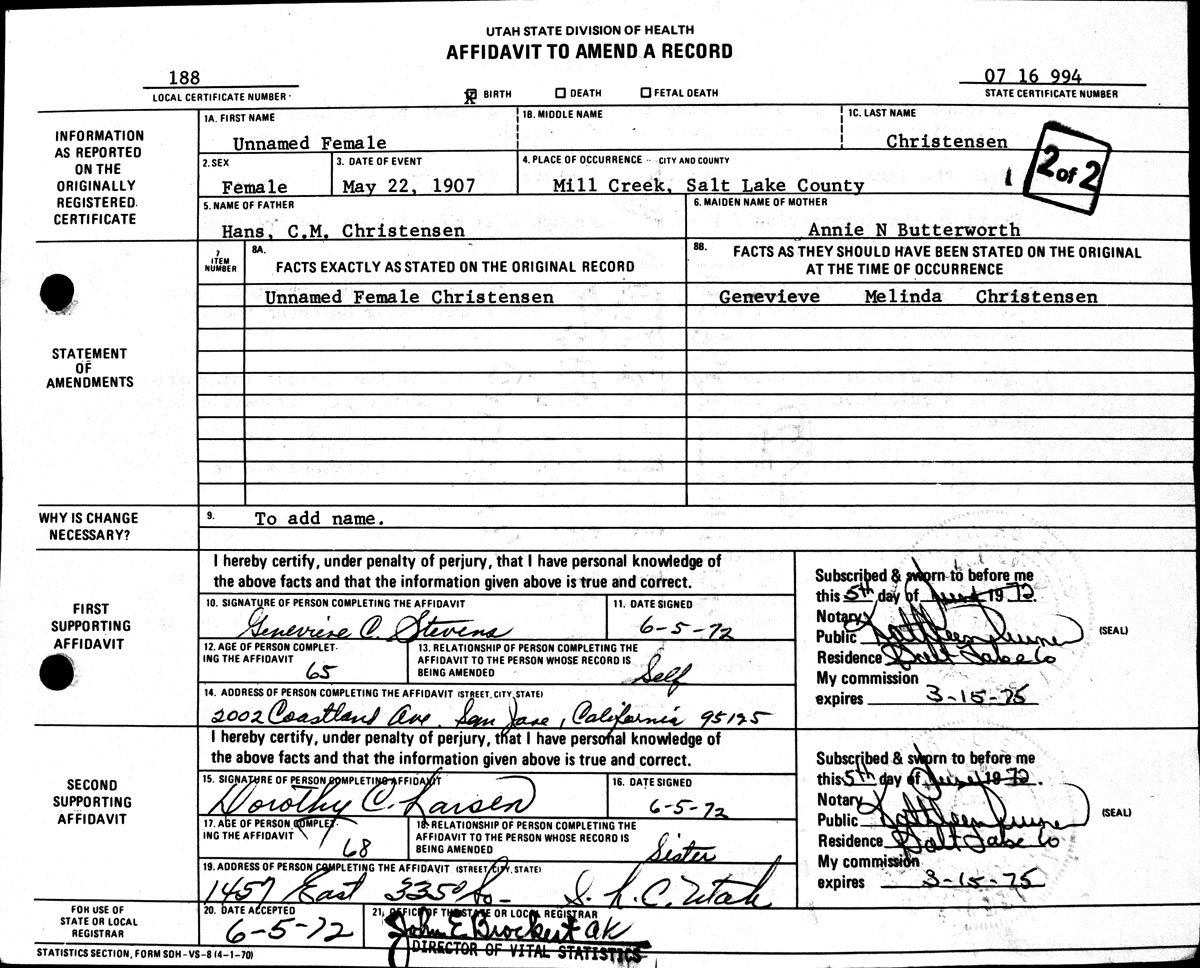 UTAH STATE DIVISION OF HEALTH
AFFIDAVIT TO AMEND A RECORD
188
LOCAL CERTIFICATE NUMBER
X BIRTH DEATH FETAL DEATH
07 16 994
STATE CERTIFICATE NUMBER
INFORMATION
AS REPORTED
ON THE
ORIGINALLY
REGISTERED
CERTIFICATE
1A. FIRST NAME
Unnamed Female
1B. MIDDLE NAME
1C. LAST NAME
Christensen
2 of 2
2. SEX
Female
3. DATE OF EVENT
May 22, 1907
4. PLACE OF OCCURRENCE -- CITY AND COUNTY
Mill Creek, Salt Lake County
5. NAME OF FATHER
Hans, C.M. Christensen
6. MAIDEN NAME OF MOTHER
Annie N Butterworth
STATEMENT
OF
AMENDMENTS
7
ITEM
NUMBER
8A.
FACTS EXACTLY AS STATED ON THE ORIGINAL RECORD
8B.
FACTS AS THEY SHOULD HAVE BEEN STATED ON THE ORIGINAL
AT THE TIME OF OCCURRENCE
Unnamed Female Christensen
Genevieve Melinda Christensen
WHY IS CHANGE
NECESSARY?
9.
To add name.
FIRST
SUPPORTING
AFFIDAVIT
I hereby certify, under penalty of perjury, that I have personal knowledge of
the above facts and that the information given above is true and correct.
10. SIGNATURE OF PERSON COMPLETING THE AFFIDAVIT
Genevieve C. Stevens
11. DATE SIGNED
6-5-72
12. AGE OF PERSON COMPLET-
ING THE AFFIDAVIT
65
13. RELATIONSHIP OF PERSON COMPLETING THE
AFFIDAVIT TO THE PERSON WHOSE RECORD IS
BEING AMENDED
Self
14. ADDRESS OF PERSON COMPLETING THE AFFIDAVIT (STREET, CITY, STATE)
2002 Coastland Ave. San Jose, California 95125
Subscribed & sworn to before me
this 5th day of June 1972.
Notary
Public Kathleen
(SEAL)
Residence Salt Lake Co
My commission
expires 3-15-75
SECOND
SUPPORTING
AFFIDAVIT
I hereby certify, under penalty of perjury, that I have personal knowledge of
the above facts and that the information given above is true and correct.
15. SIGNATURE OF PERSON COMPLETING AFFIDAVIT
Dorothy C. Larsen
16. DATE SIGNED
6-5-72
17. AGE OF PERSON COMPLET-
ING THE AFFIDAVIT
68
18. RELATIONSHIP OF PERSON COMPLETING THE
AFFIDAVIT TO THE PERSON WHOSE RECORD IS
BEING AMENDED
Sister
19. ADDRESS OF PERSON COMPLETING THE AFFIDAVIT (STREET, CITY, STATE)
1457 East 3350 So- S. L. C. Utah
Subscribed & sworn to before me
this 5th day of June 1972.
Notary
Public Kathleen
(SEAL)
Residence Salt Lake Co
My commission
expires 3-15-75
FOR USE OF
STATE OR LOCAL
REGISTRAR
20. DATE ACCEPTED
6-5-72
21. OFFICE OF THE STATE OR LOCAL REGISTRAR
John E Brockert ak
DIRECTOR OF VITAL STATISTICS
STATISTICS SECTION, FORM SDH-VS-8 (4-1-70)